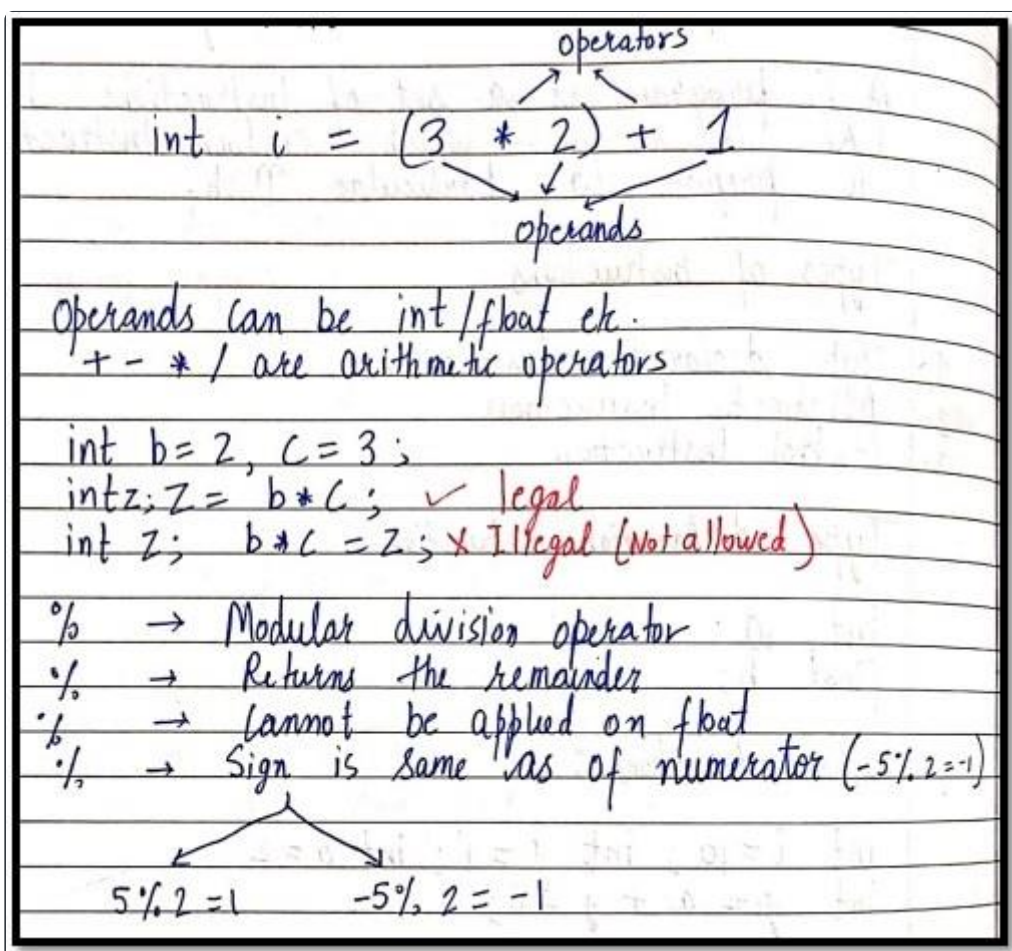 operators
int i = (3 * 2) + 1
operands
Operands can be int/float etc.
+ - * / are arithmetic operators
int b = 2, c = 3;
int z; z = b * c; ✓ legal
int z; b * c = z; x Illegal (Not allowed)
% → Modular division operator
% → Returns the remainder
% → Cannot be applied on float
% → Sign is same as of numerator (-5% 2=-1)
5% 2 = 1 -5% 2 = -1